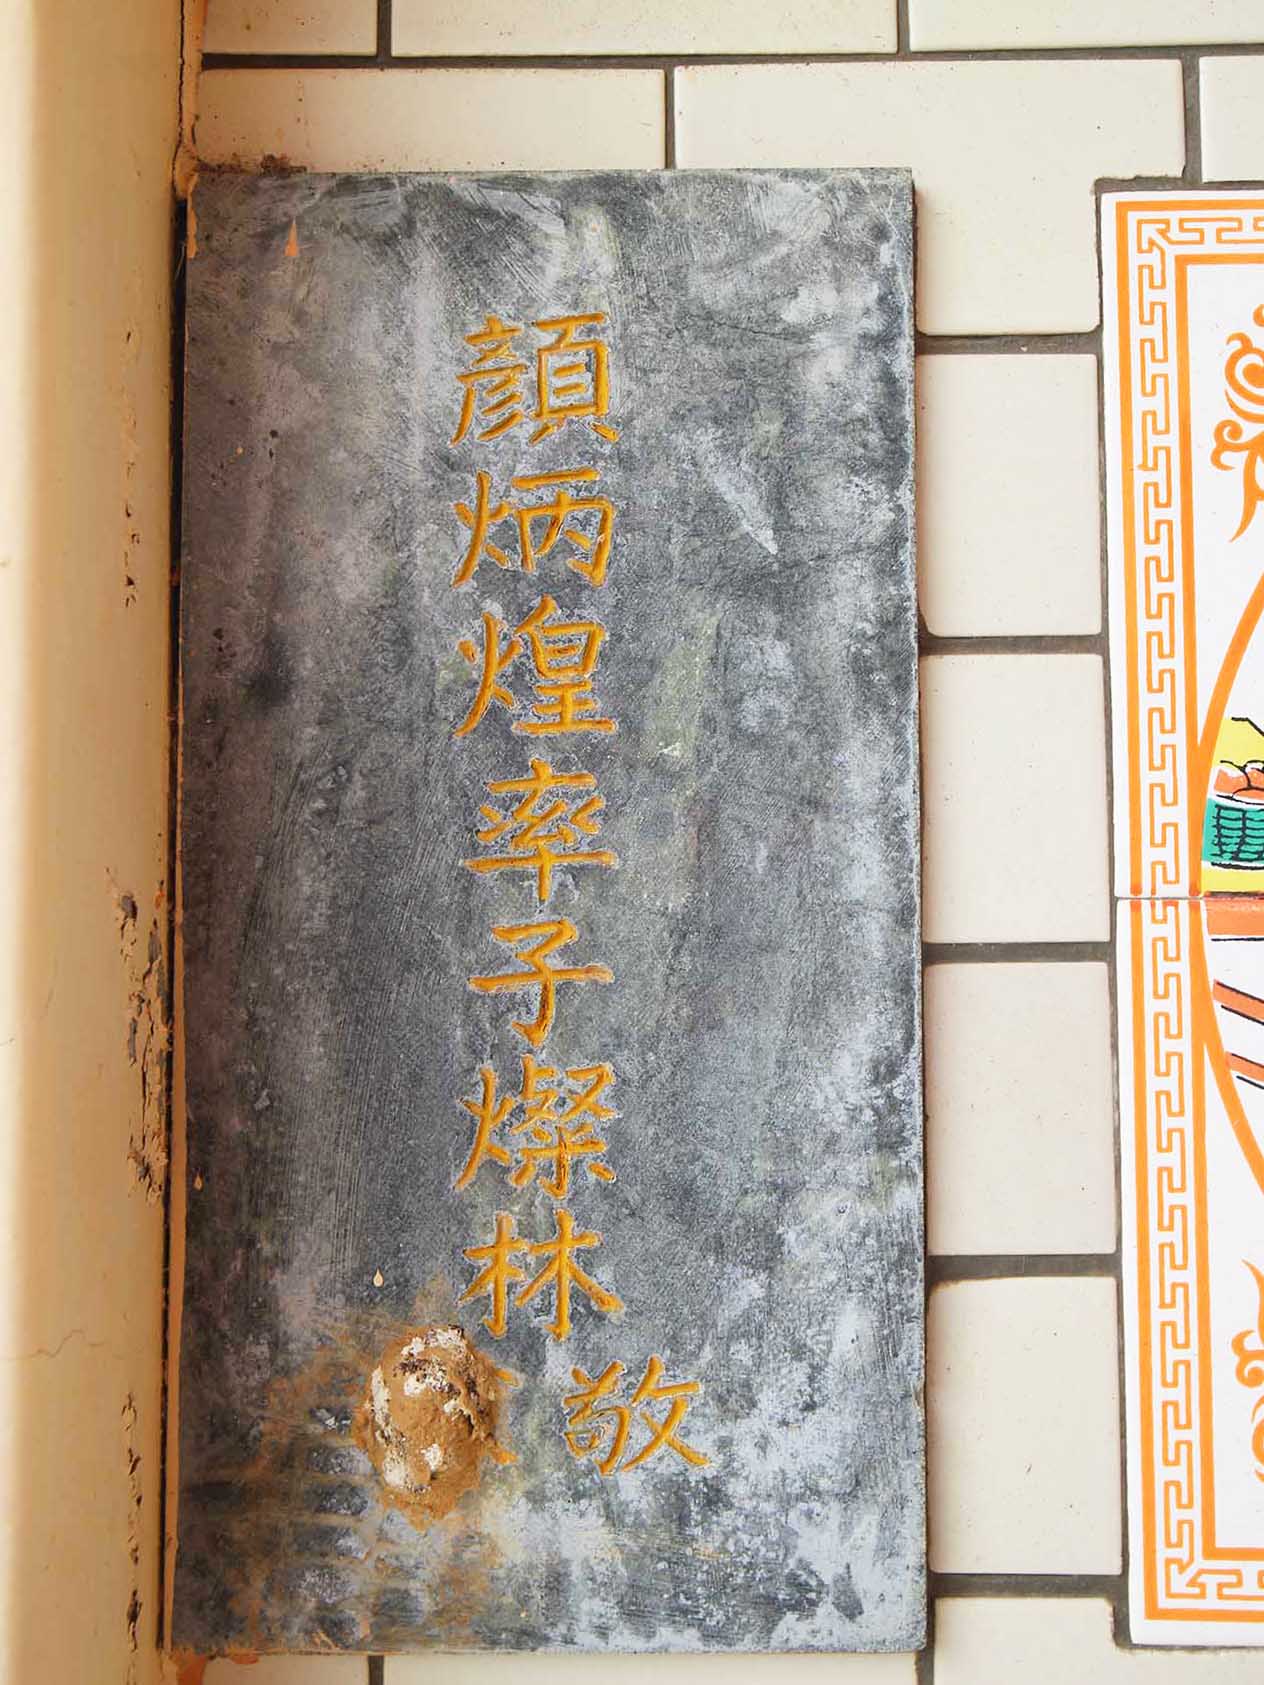 顏炳煌率子燦林
敬